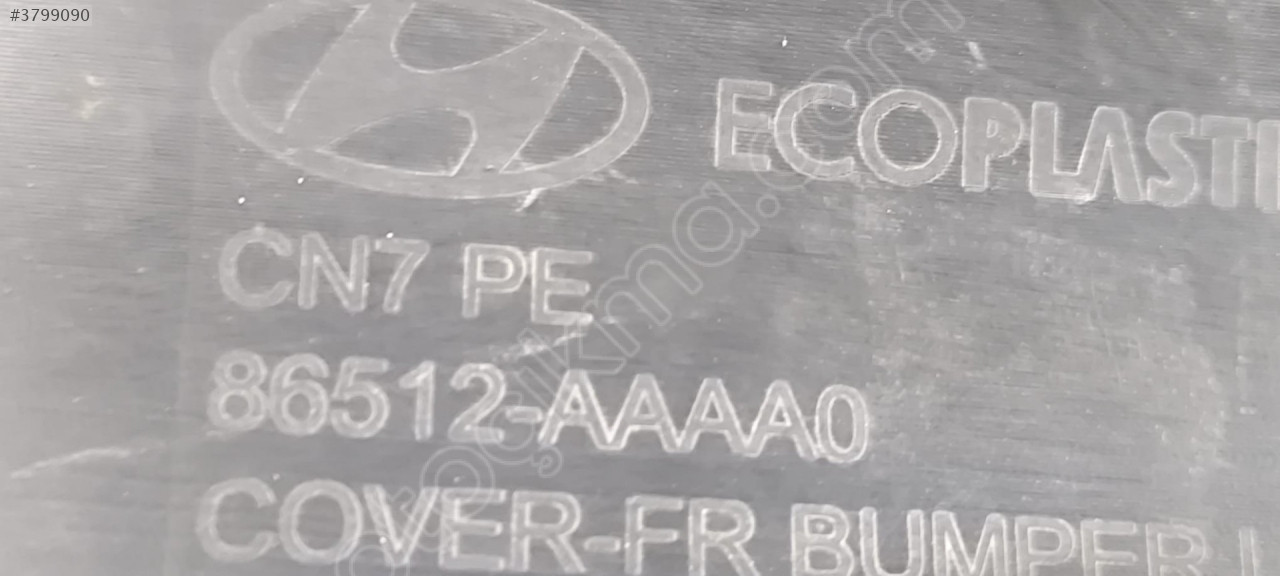 #3799090
ECOPLASTI
CN7 PE
86512-AAAA0
COVER-FR BUMPER L